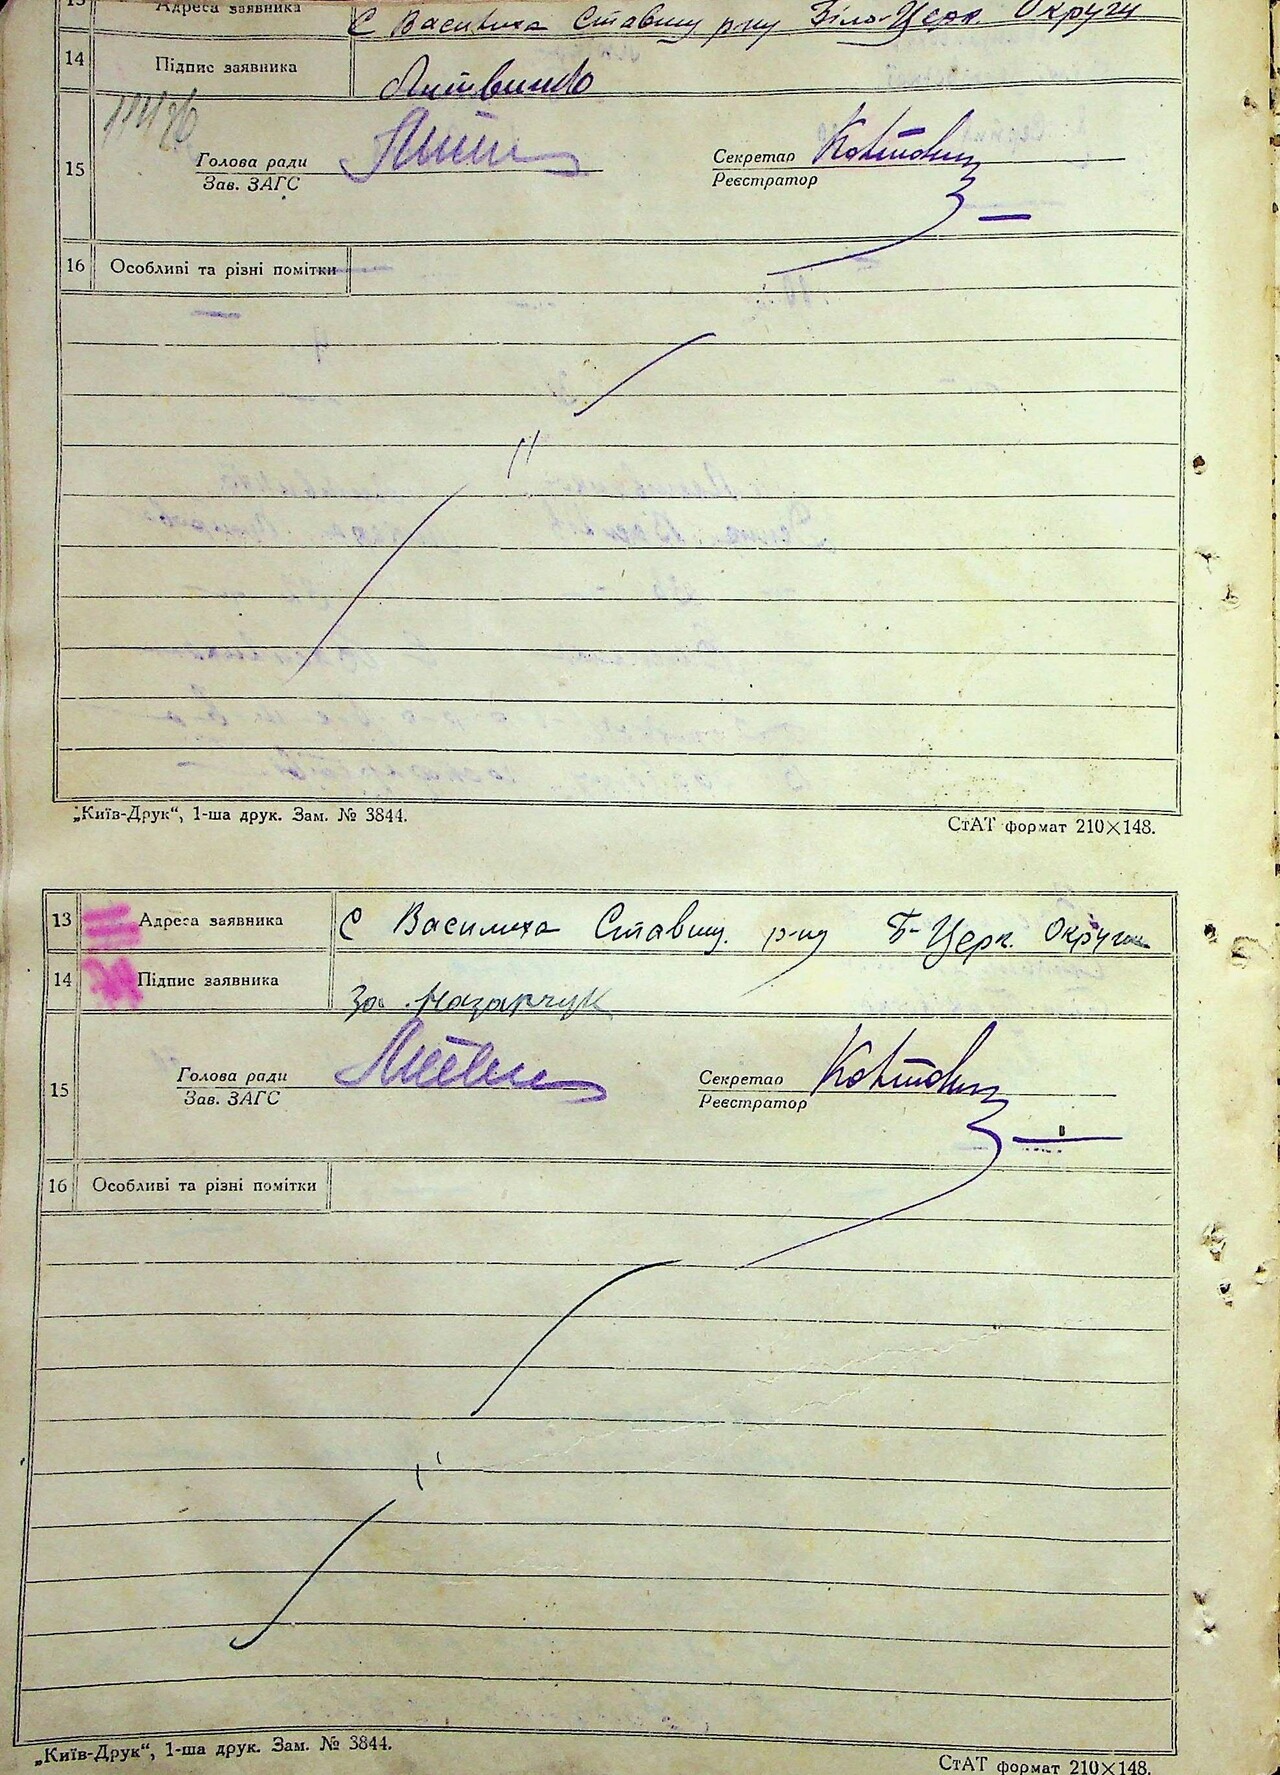 13 Адреса заявника С Василиха Ставищ. р-ну Біло-Церк. Округи
14 Підпис заявника Литвинко
15 Голова ради Секретар
Зав. ЗАГС Реєстратор
16 Особливі та різні помітки
„Київ-Друк“, 1-ша друк. Зам. № 3844. СтАТ формат 210×148.
13 Адреса заявника С Василиха Ставищ. р-ну Б-Церк. Округи
14 Підпис заявника За Назарчук
15 Голова ради Секретар
Зав. ЗАГС Реєстратор
16 Особливі та різні помітки
„Київ-Друк“, 1-ша друк. Зам. № 3844. СтАТ формат 210×148.